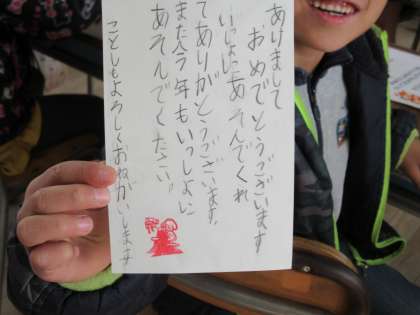 あけまして
おめでとうございます
いしょにあそんでくれ
てありがとうございます。
また今年もいっしょに
あそんでください。
ことしもよろしくおねがいします